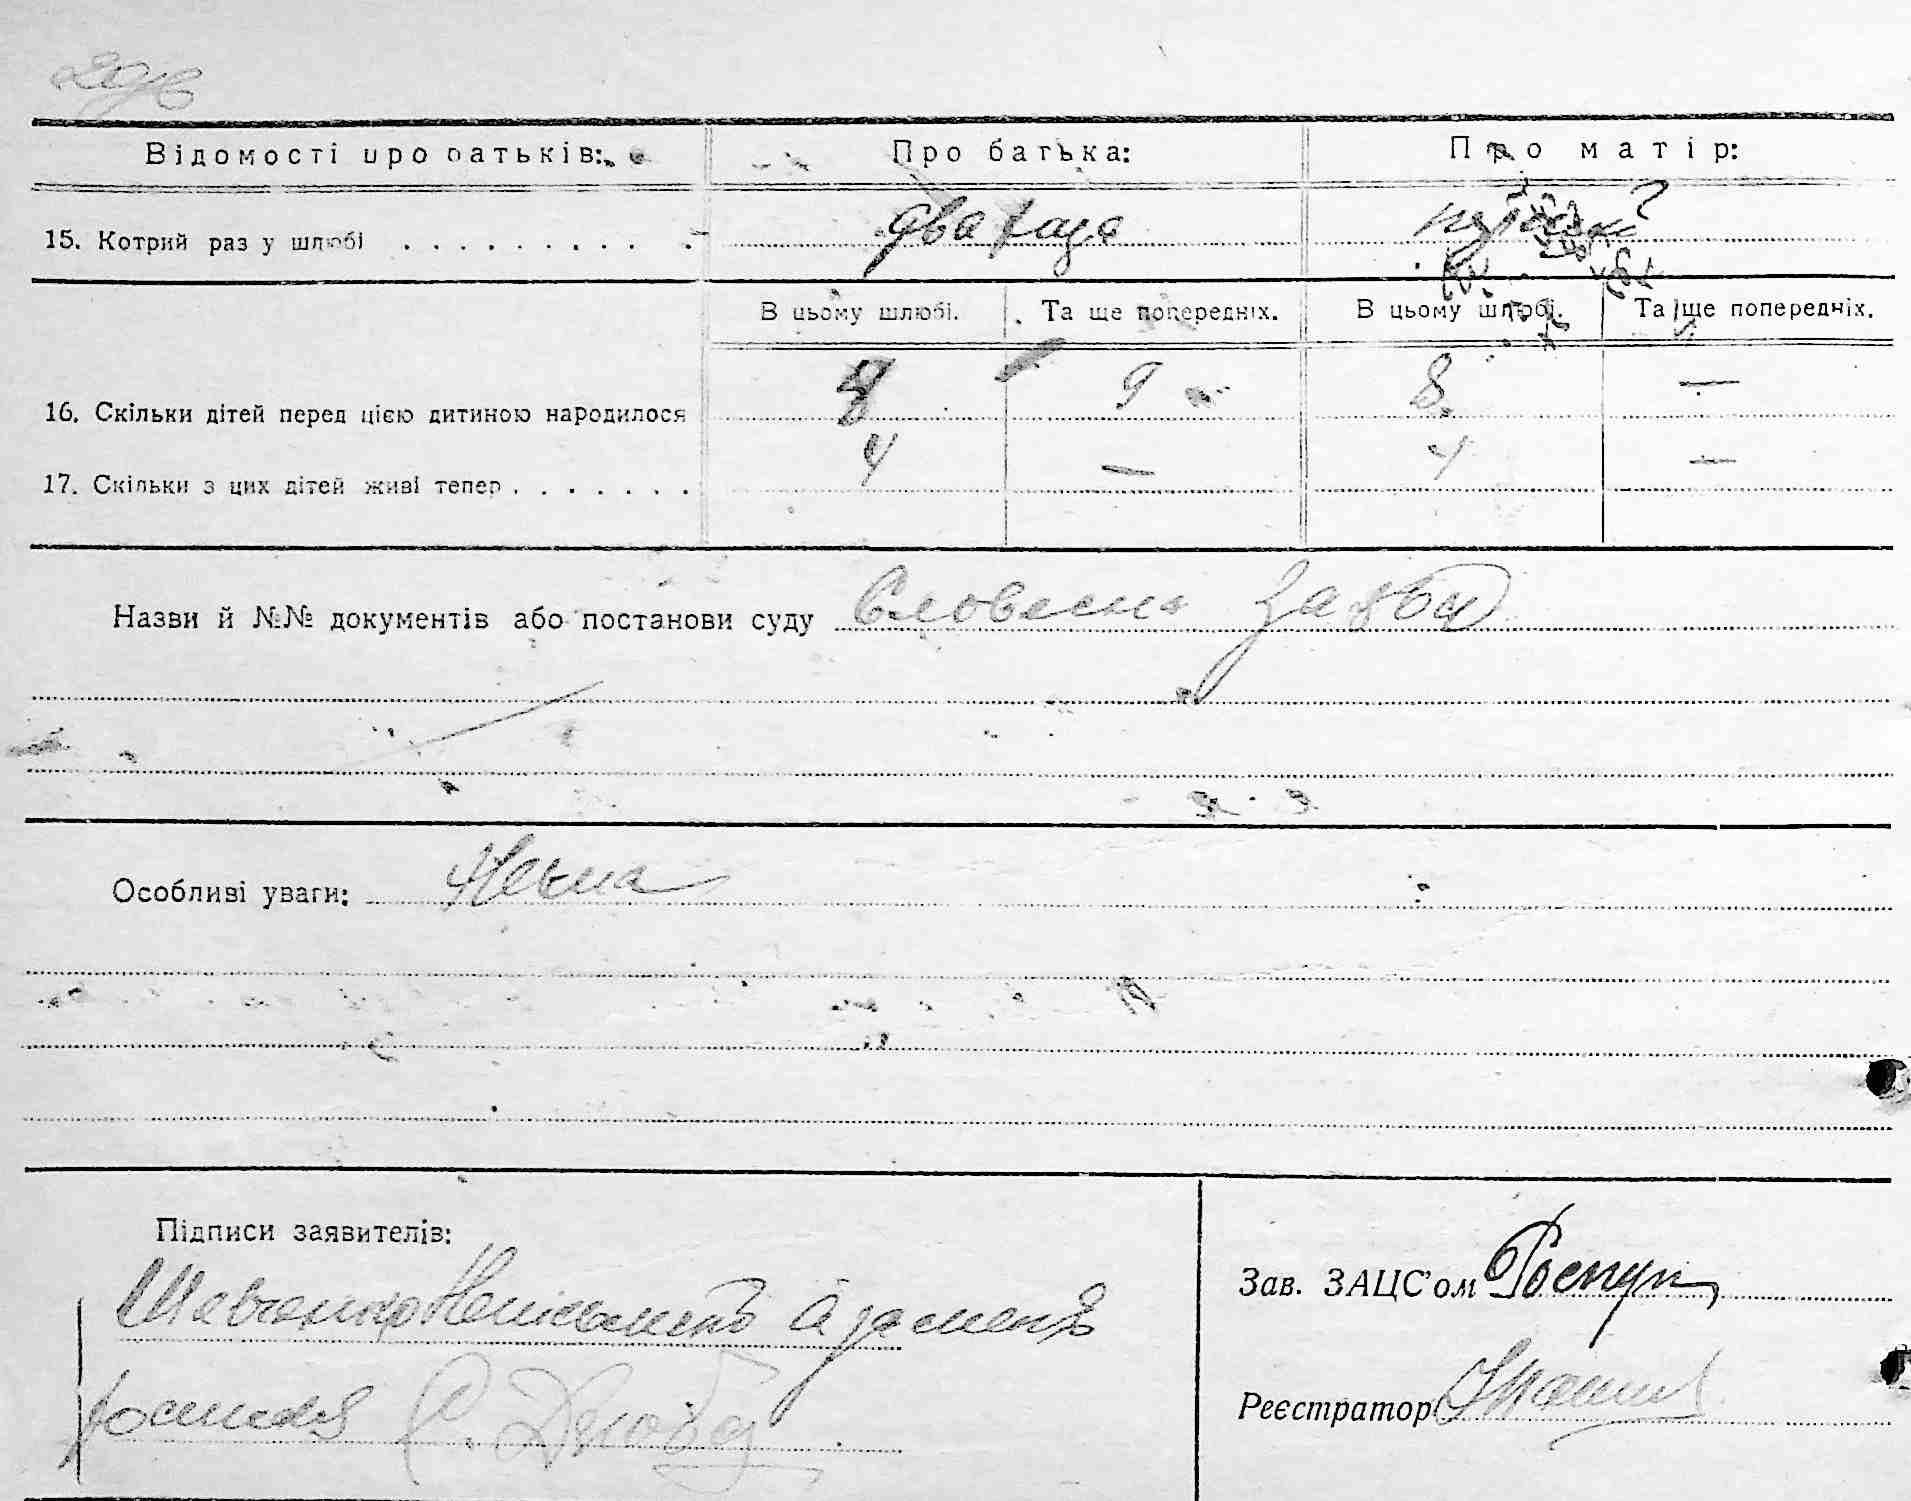 Відомості про батьків: Про батька: Про матір:
15. Котрий раз у шлюбі . . . . . . . . . . два раза
В цьому шлюбі. Та ще попередніх. В цьому шлюбі. Та ще попередніх.
16. Скільки дітей перед цією дитиною народилося 9 8 —
17. Скільки з цих дітей живі тепер . . . . . . . 4 — 4 —
Назви й №№ документів або постанови суду Словесна заява
Особливі уваги: Нема
Підписи заявителів:
Шевченко а за меня
Зав. ЗАЦС'ом
росписався С. Дзюба
Реєстратор